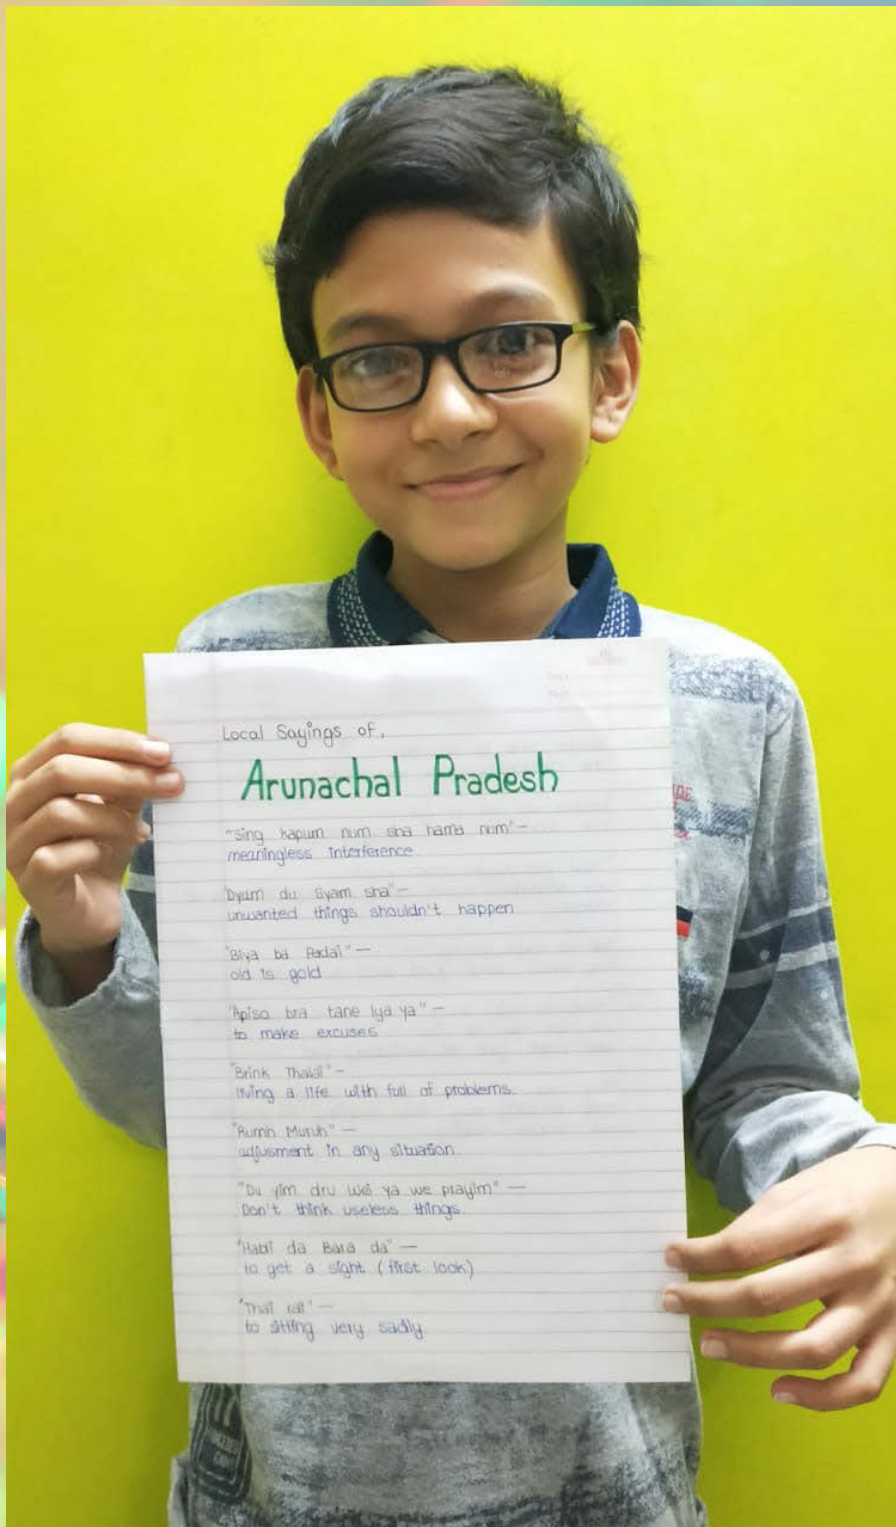 Local Sayings of,
Arunachal Pradesh
"Sing kapum num sha hama num" –
meaningless interference.
"Dyum du syam sha" –
unwanted things shouldn't happen
"Biya ba Padai" –
old is gold
"Apiso bra tane lya ya" –
to make excuses
"Brink Thalai" –
living a life with full of problems.
"Rumh Muruh" –
adjusment in any situation.
"Du yim dru wei ya we prayim" –
Don't think useless things.
"Habi da Bara da" –
to get a sight (first look)
"Thai rai" –
to sitting very sadly.